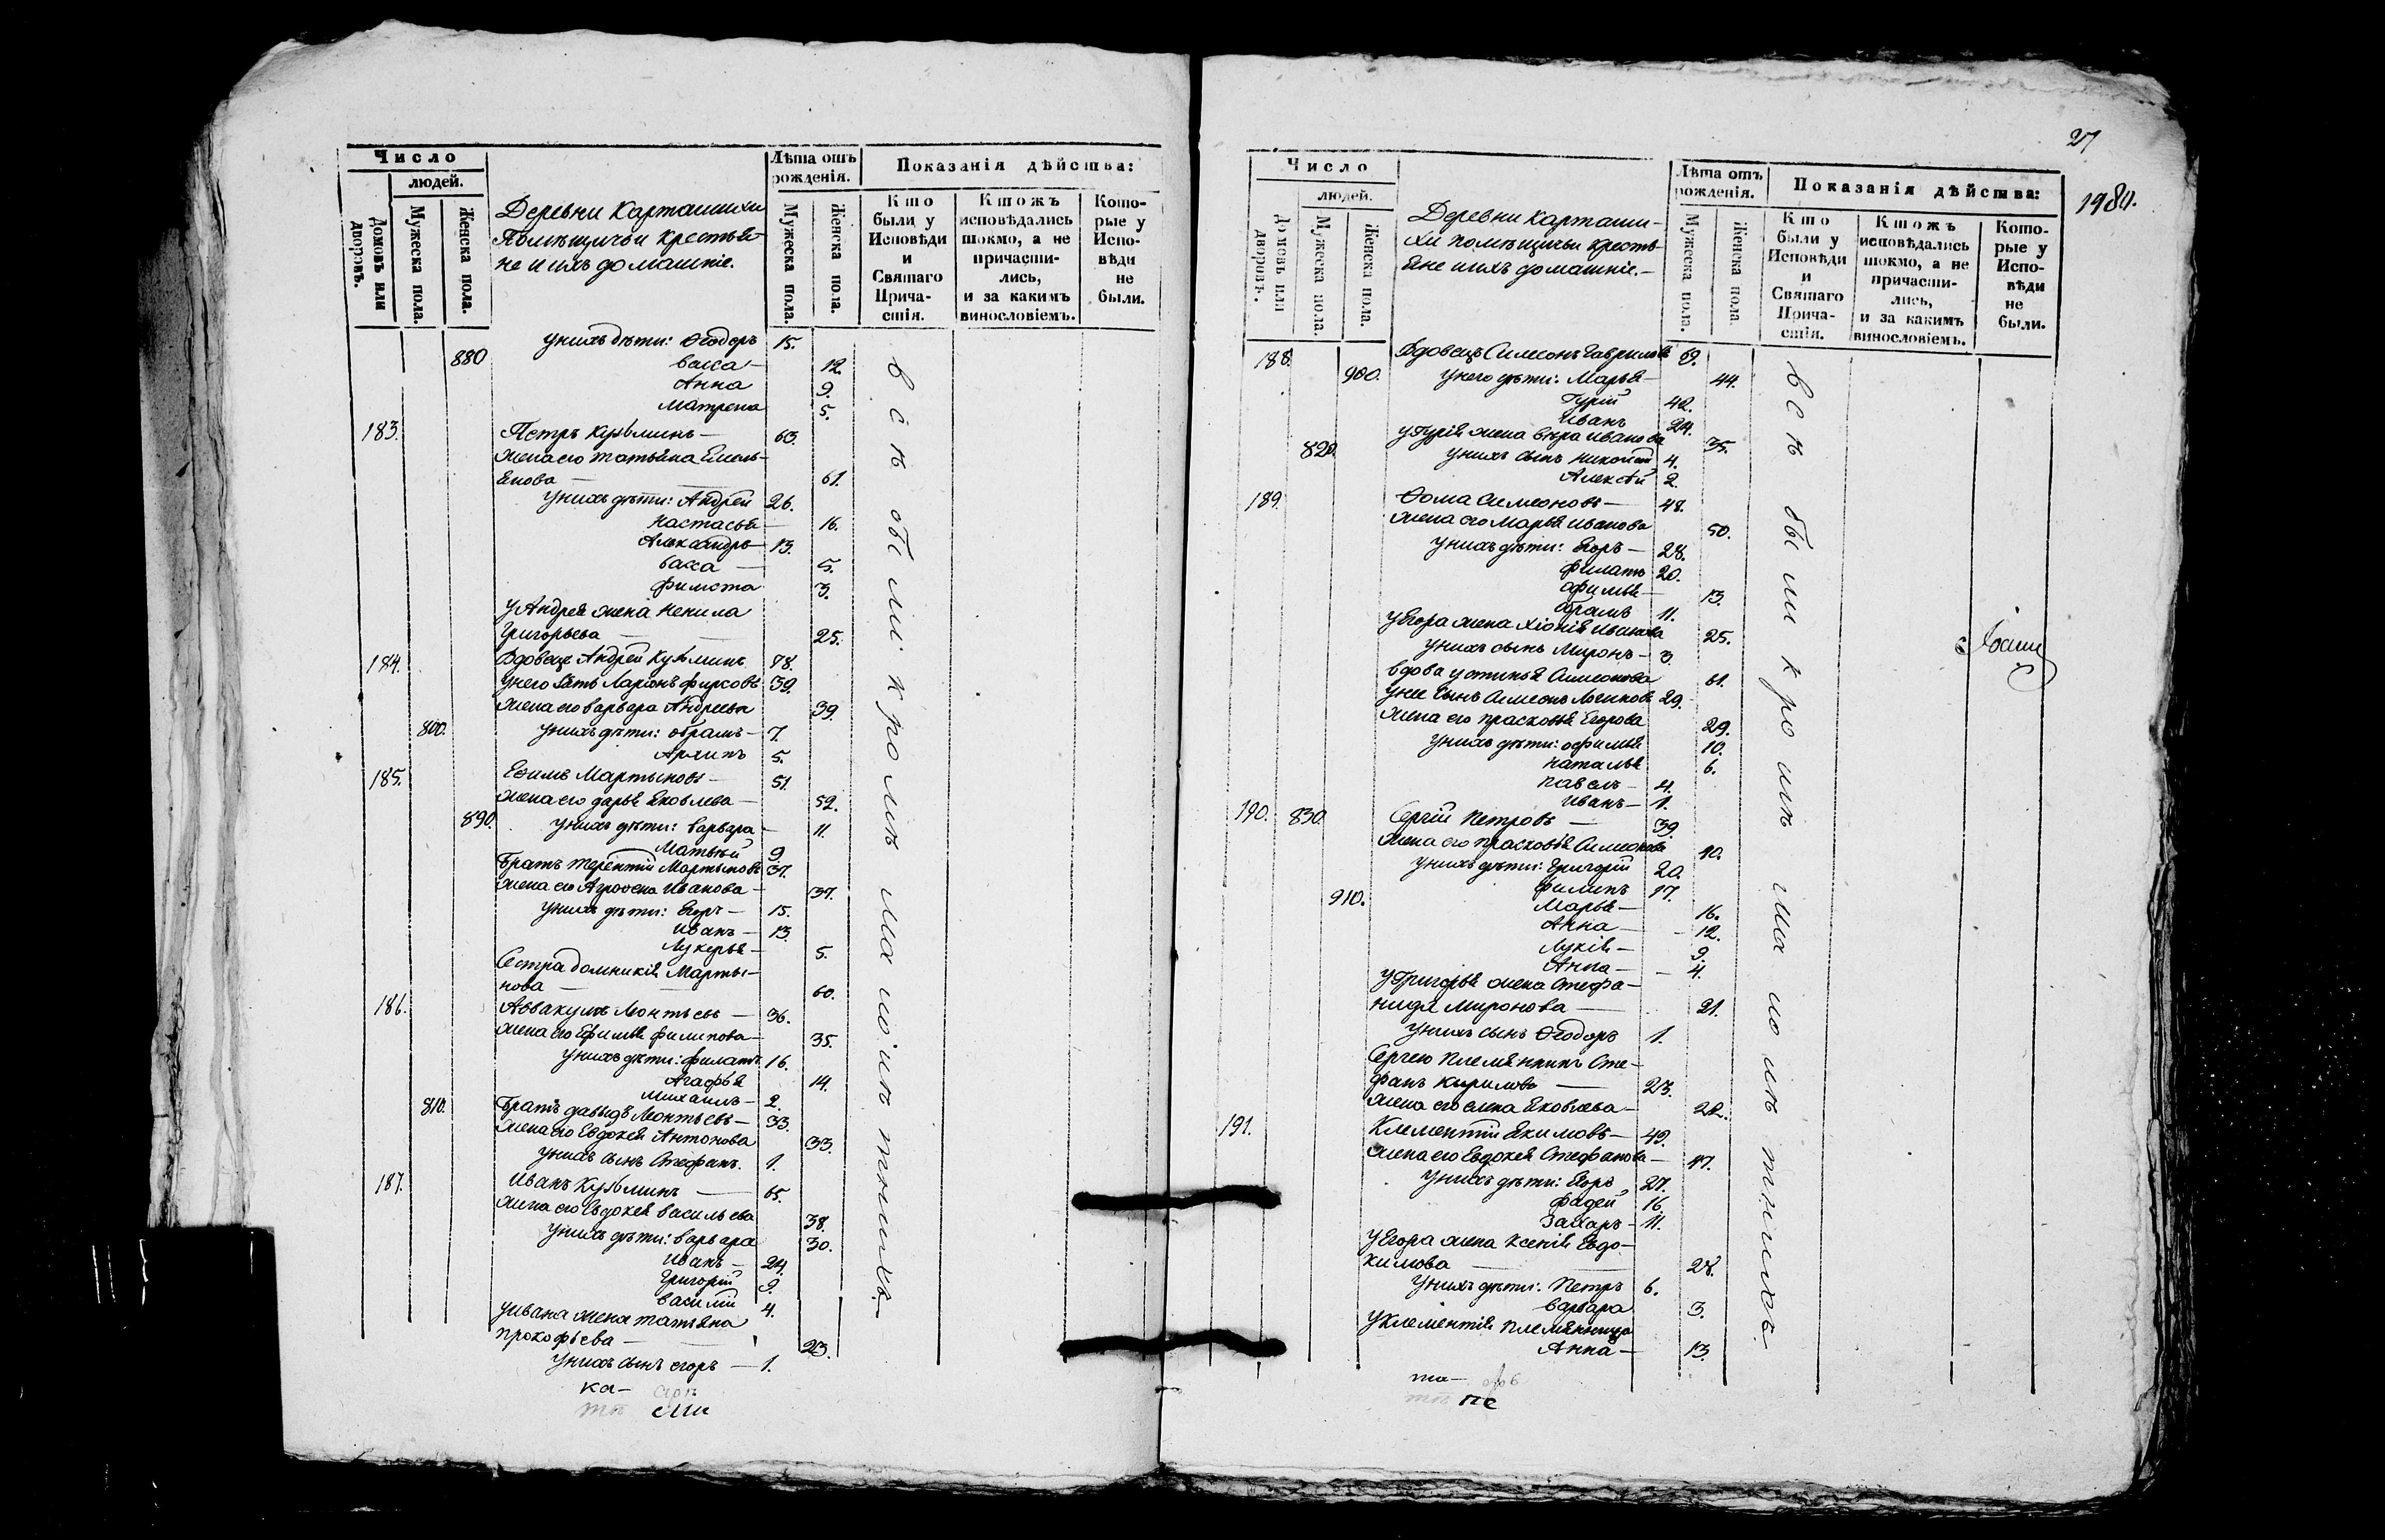 Число
людей.
Домовъ или дворовъ.
Мужеска пола.
Женска пола.
Деревни Карташихи
Помѣщичьи крестья-
не и ихъ домашніе.
Лѣта отъ рожденія.
Мужеска пола.
Женска пола.
Показанія дѣйства:
Кто были у Исповѣди и Святаго Причастія.
Ктожъ исповѣдались токмо, а не причасти-лись, и за какимъ винословіемъ.
Кото-рые у Испо-вѣди не были.
у нихъ дѣти: Ѳеодоръ 15.
880 васса 12.
Анна 9.
Матрена 5.
183. Петръ Кузьминъ 63.
жена его татьяна Емель-
янова 61.
у нихъ дѣти: Андрей 26.
настасья 16.
Александръ 13.
васса 5.
филиста 3.
у Андрея жена Ненила
Григорьева 25.
184. Вдовецъ Андрей Кузьминъ 78.
у него зять Ларіонъ фирсовъ 39.
жена его варвара Андреева 39.
800. у нихъ дѣти: обрамъ 7.
Архипъ 5.
185. Ефимъ Мартыновъ 51.
жена его дарья Яковлева 52.
890. у нихъ дѣти: варвара 11.
Матвѣй 9.
Братъ терентій Мартыновъ 37.
жена его Агрофена Иванова 37.
у нихъ дѣти: Егоръ 15.
иванъ 13.
Лукерья 5.
Сестра домникія Марты-
нова 60.
186. Аввакумъ Леонтьевъ 36.
жена его Ефимья филипова 35.
у нихъ дѣти: филатъ 16.
Агафья 14.
михаилъ 2.
810. Братъ давыдъ Леонтьевъ 33.
жена его Евдокея Антонова 33.
у нихъ сынъ Стефанъ. 1.
187. Иванъ Кузьминъ 65.
жена его Евдокея васильева 38.
у нихъ дѣти: варвара 30.
иванъ 24.
Григорій 9.
василій 4.
у ивана жена татьяна
прокофьева 23.
у нихъ сынъ егоръ 1.
всѣ были кромѣ малолѣтнихъ.
ка-
ми
27
198
Число
людей.
Домовъ или дворовъ.
Мужеска пола.
Женска пола.
Деревни Карташи-
хи помѣщичьи кресть-
яне и ихъ домашніе.
Лѣта отъ рожденія.
Мужеска пола.
Женска пола.
Показанія дѣйства:
Кто были у Исповѣди и Святаго Прича-стія.
Ктожъ исповѣдались токмо, а не причасти-лись, и за какимъ винословіемъ.
Кото-рые у Испо-вѣди не были.
188. Вдовецъ Симеонъ Гавриловъ 69.
900. у него дѣти: Марья 44.
Гурій 42.
Иванъ 24.
у Гурія жена вѣра иванова 35.
820. у нихъ сынъ николай 4.
Алексѣй 2.
189. Ѳома Симеоновъ 48.
жена его Марья иванова 50.
у нихъ дѣти: Егоръ 28.
филатъ 20.
офимья 13.
обрамъ 11.
у Егора жена Хіонія Иванова 25.
у нихъ сынъ Миронъ 3.
вдова устинья Симеонова 61.
у нее сынъ Симеонъ 29.
жена его прасковья Егорова 29.
у нихъ дѣти: офимья 10.
наталья 6.
павелъ 4.
иванъ 1.
190. 830. Сергій Петровъ 39.
жена его прасковья Симеонова 40.
у нихъ дѣти: Григорій 20.
филипъ 17.
910. Марья 16.
Анна 12.
Лукія 9.
Анна 4.
у Григорья жена Стефа-
нида Миронова 21.
у нихъ сынъ Ѳеодоръ 1.
Сергею племянникъ Сте-
фанъ Кириловъ 23.
жена его елена Яковлева 22.
191. Клементій Якимовъ 49.
жена его Евдокея Стефанова 47.
у нихъ дѣти: Егоръ 27.
фадей 16.
Захаръ 11.
у Егора жена Ксенія Евдо-
кимова 28.
у нихъ дѣти: Петръ 6.
варвара 3.
у Клементія племянница
Анна 13.
всѣ были кромѣ малолѣтнихъ.
та-
пе